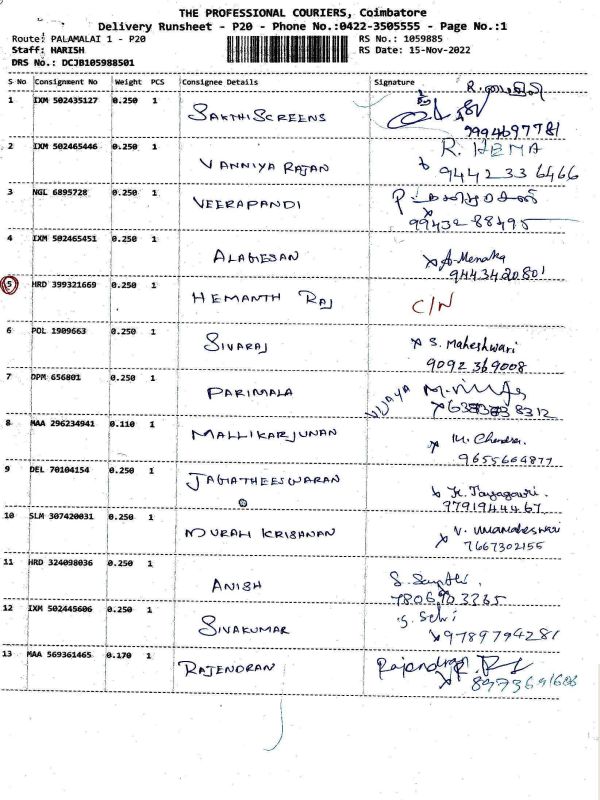 THE PROFESSIONAL COURIERS, Coimbatore
Delivery Runsheet - P20 - Phone No.:0422-3505555 - Page No.:1
Route: PALAMALAI 1 - P20 RS No.: 1059885
Staff: HARISH RS Date: 15-Nov-2022
DRS No.: DCJB105988501
S No Consignment No Weight PCS Consignee Details Signature
1 IXM 502435127 0.250 1 SAKTHI SCREENS
9994697781
2 IXM 502465446 0.250 1 VANNIYA RAJAN R. HEMA
9442336466
3 NGL 6895728 0.250 1 VEERAPANDI
9943288495
4 IXM 502465451 0.250 1 ALAGESAN A. Menaka
9443420801
5 HRD 399321669 0.250 1 HEMANTH RAJ C/N
6 POL 1909663 0.250 1 SIVARAJ S. Maheshwari
9092369008
7 DPM 656801 0.250 1 PARIMALA VIJAYA
8 MAA 296234941 0.110 1 MALLIKARJUNAN M. Chendra
9655664877
9 DEL 70104154 0.250 1 JAGATHEESWARAN
9791944467
10 SLM 307420031 0.250 1 MURALI KRISHNAN V. Umamaheswari
7667302155
11 HRD 324098036 0.250 1 ANISH S. Santhi
12 IXM 502445606 0.250 1 SIVAKUMAR S. Selvi
9789794281
13 MAA 569361465 0.170 1 RAJENDRAN Rajendran
8973691686